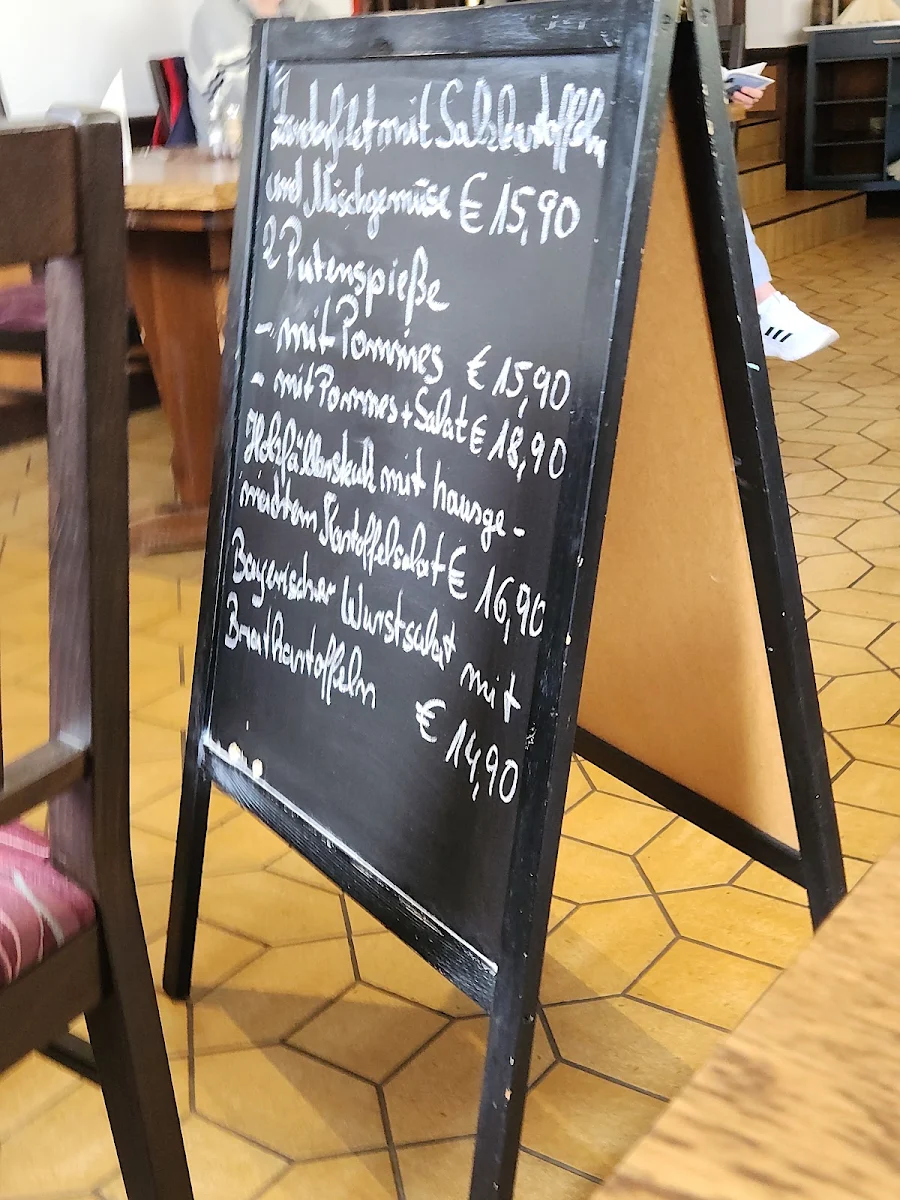 Zanderfilet mit Salzkartoffeln
und Mischgemüse € 15,90
2 Putenspieße
- mit Pommes € 15,90
- mit Pommes + Salat € 18,90
Holzfällersteak mit hausge-
machtem Kartoffelsalat € 16,90
Bayerischer Wurstsalat mit
Bratkartoffeln € 14,90